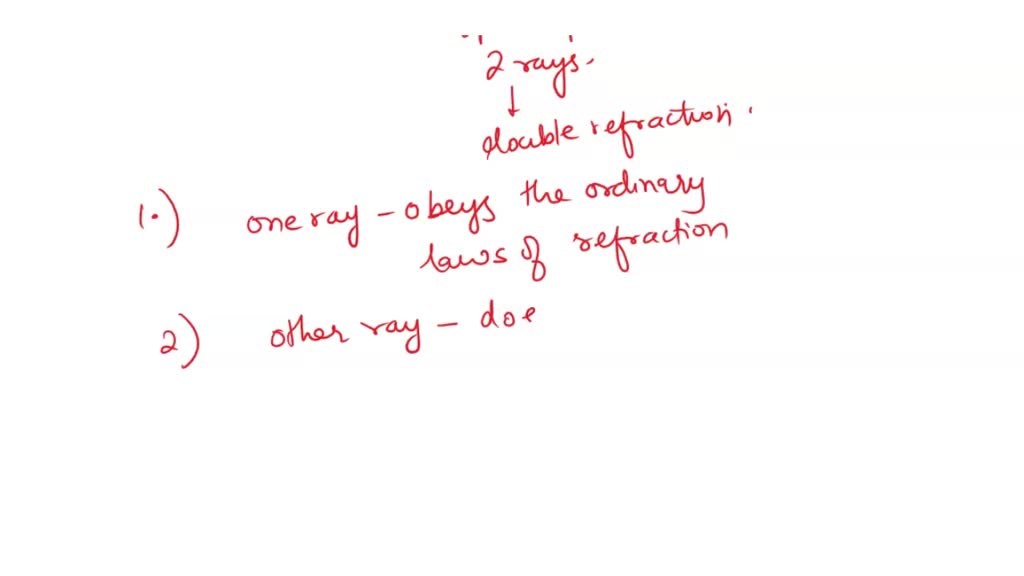 2 rays.
↓
double refraction.
1.) one ray - obeys the ordinary
laws of refraction
2) other ray - doe